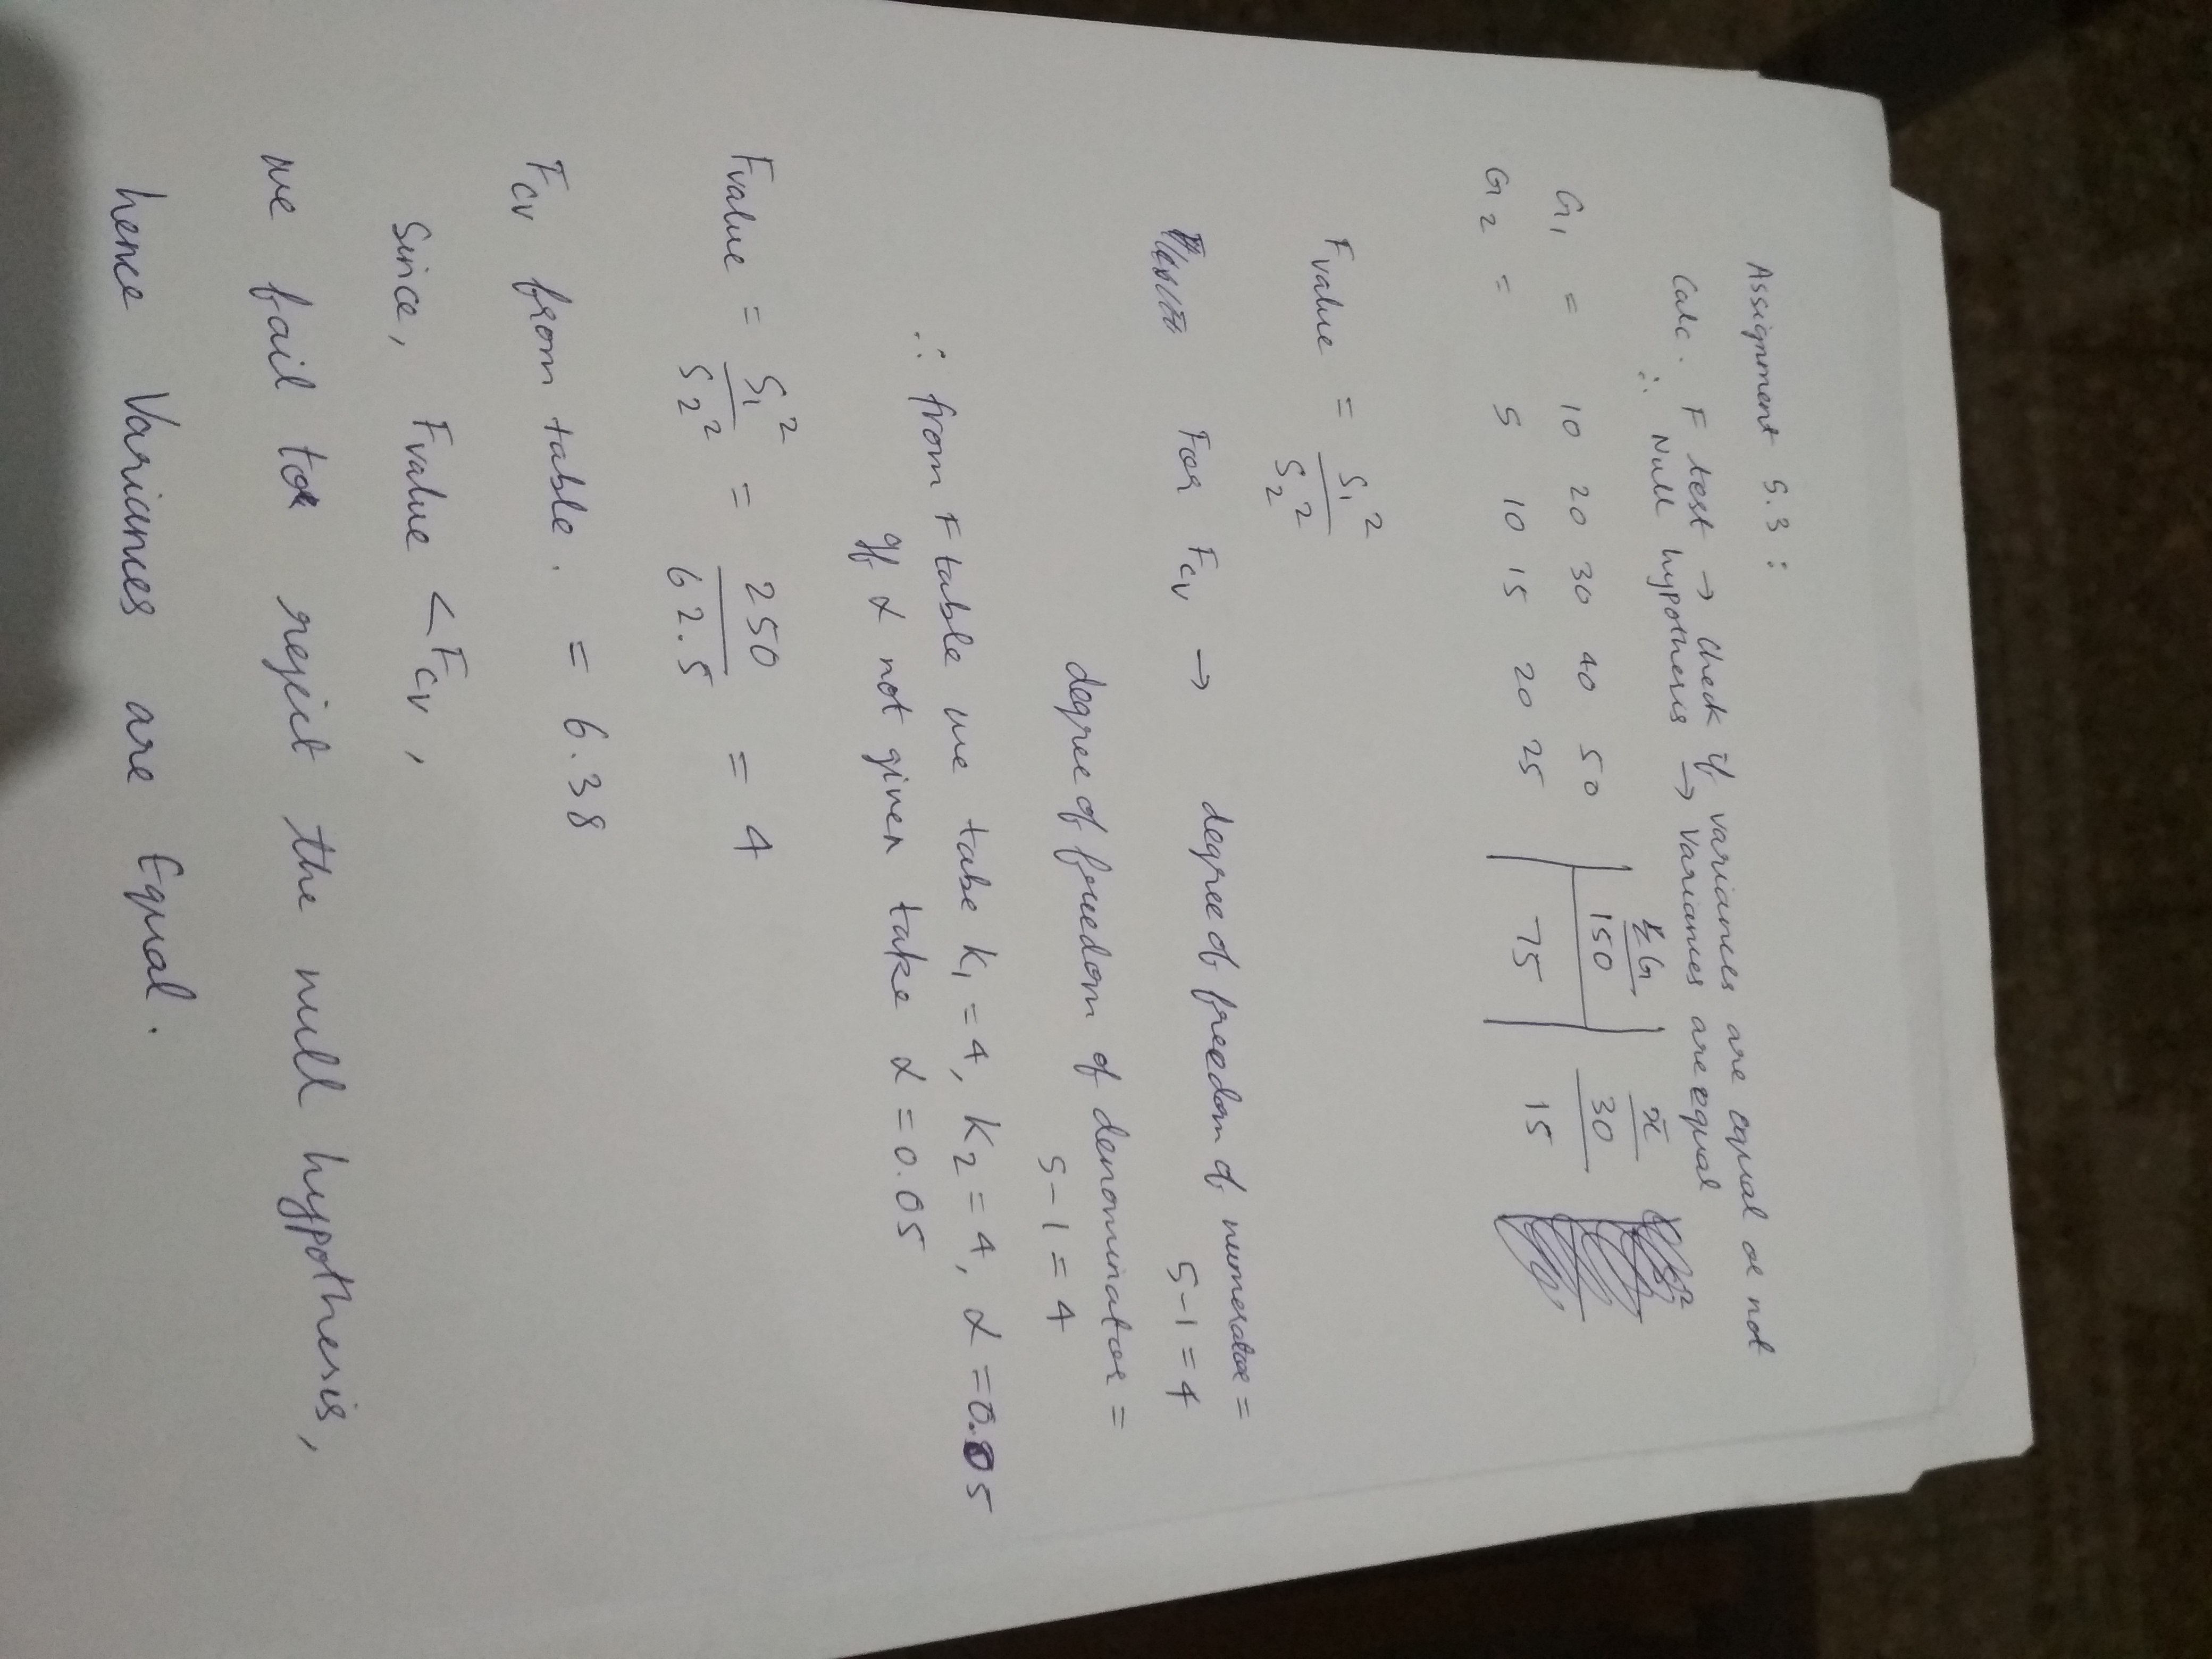 Assignment 5.3 :
Calc. F test → Check if variances are equal or not
∴ Null hypothesis → Variances are equal
ΣG x̄
G1 = 10 20 30 40 50 150 30
G2 = 5 10 15 20 25 75 15
Fvalue = S1² / S2²
For Fcv → degree of freedom of numerator =
5-1 = 4
degree of freedom of denominator =
5-1 = 4
∴ from F table we take K1 = 4, K2 = 4, α = 0.05
If α not given take α = 0.05
Fvalue = S1² / S2² = 250 / 62.5 = 4
Fcv from table. = 6.38
Since, Fvalue < Fcv,
we fail to reject the null hypothesis,
hence Variances are Equal.